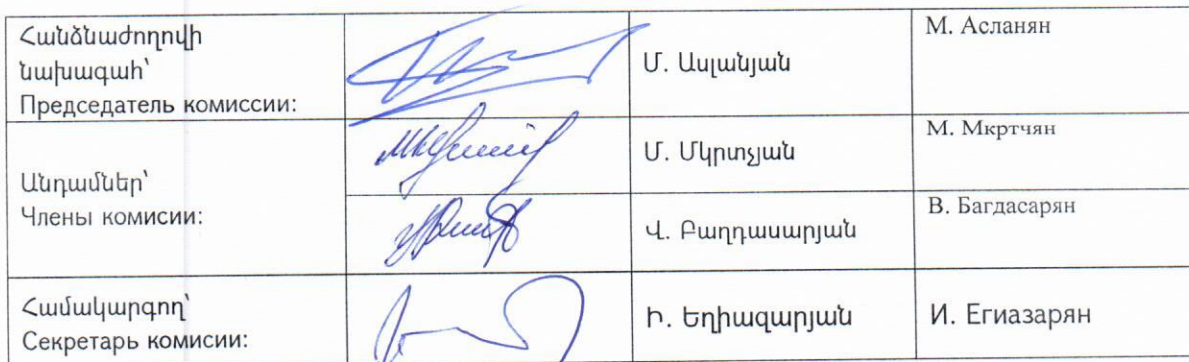 Հանձնաժողովի
նախագահ՝
Председатель комиссии:
Մ. Ասլանյան
М. Асланян
Անդամներ՝
Члены комисии:
Մ. Մկրտչյան
М. Мкртчян
Վ. Բաղդասարյան
В. Багдасарян
Համակարգող՝
Секретарь комисии:
Ի. Եղիազարյան
И. Егиазарян